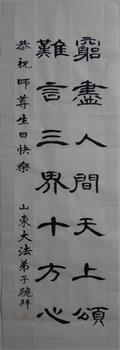 窮盡人間天上頌
難言三界十方心
恭祝師尊生日快樂
山東大法弟子跪拜